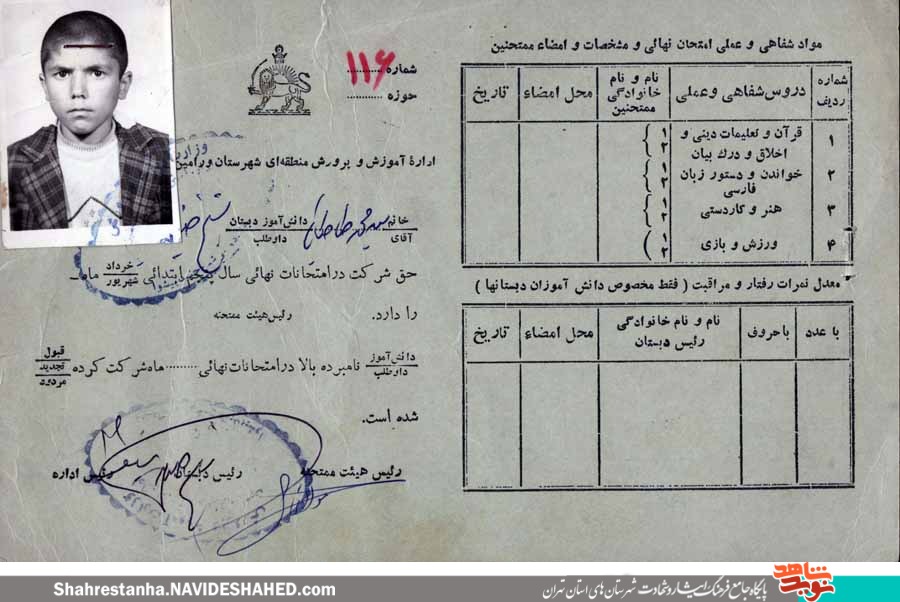 مواد شفاهی و عملی امتحان نهائی و مشخصات و امضاء ممتحنین
شماره ردیف
دروس شفاهی و عملی
نام و نام خانوادگی ممتحنین
محل امضاء
تاریخ
۱
قرآن و تعلیمات دینی و
اخلاق و درك بیان
۱
۲
۲
خواندن و دستور زبان
فارسی
۱
۲
۳
هنر و کاردستی
۱
۲
۴
ورزش و بازی
۱
۲
معدل نمرات رفتار و مراقبت ( فقط مخصوص دانش آموزان دبستانها )
با عدد
باحروف
نام و نام خانوادگی
رئیس دبستان
محل امضاء
تاریخ
شماره ۱۱۶
حوزه
ادارۀ آموزش و پرورش منطقه‌ای شهرستان ورامین
خانم
آقای
سید محمد
دانش‌آموز دبستان
داوطلب
حق شرکت در امتحانات نهائی سال پنجم ابتدائی خرداد
شهریور ماه
را دارد.
رئیس هیئت ممتحنه
دانش‌آموز
داوطلب
نامبرده بالا در امتحانات نهائی ......... ماه شرکت کرده
قبول
تجدید
مردود
شده است.
رئیس هیئت ممتحنه
رئیس دبستان
رئیس اداره
Shahrestanha.NAVIDESHAHED.com
نوید شاهد
پایگاه جامع فرهنگ ایثار و شهادت شهرستان های استان تهران